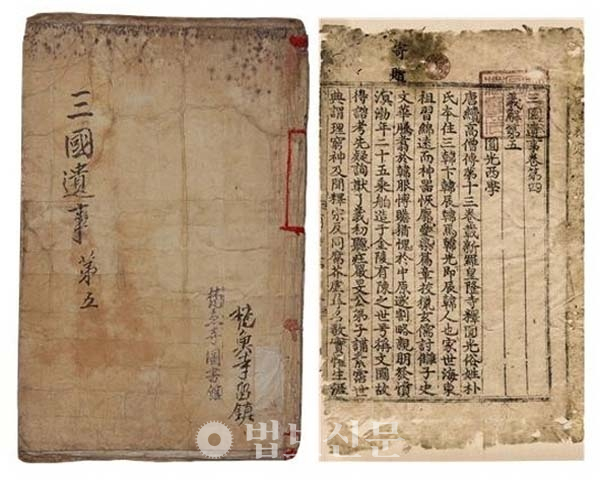 三國遺事 第五
梵魚寺
梵魚寺圖書館
三國遺事卷第四
義解第五
圓光西學
唐續高僧傳第十三卷載新羅皇隆寺釋圓光俗姓朴
氏本住三韓卞韓辰韓馬韓光即辰韓人也家世海東
祖習綿遠而神器恢廓愛染篇章校獵玄儒討讎子史
文華騰翥於韓服博贍猶愧於中原遂割略親朋發憤
溟渤年二十五乘舶造于金陵有陳之世号稱文國故
得諮考先疑詢猷了義初聽莊嚴旻公弟子講素霑世
典謂理窮神及聞釋宗反同腐芥虛尋名教實懼生涯
법보신문